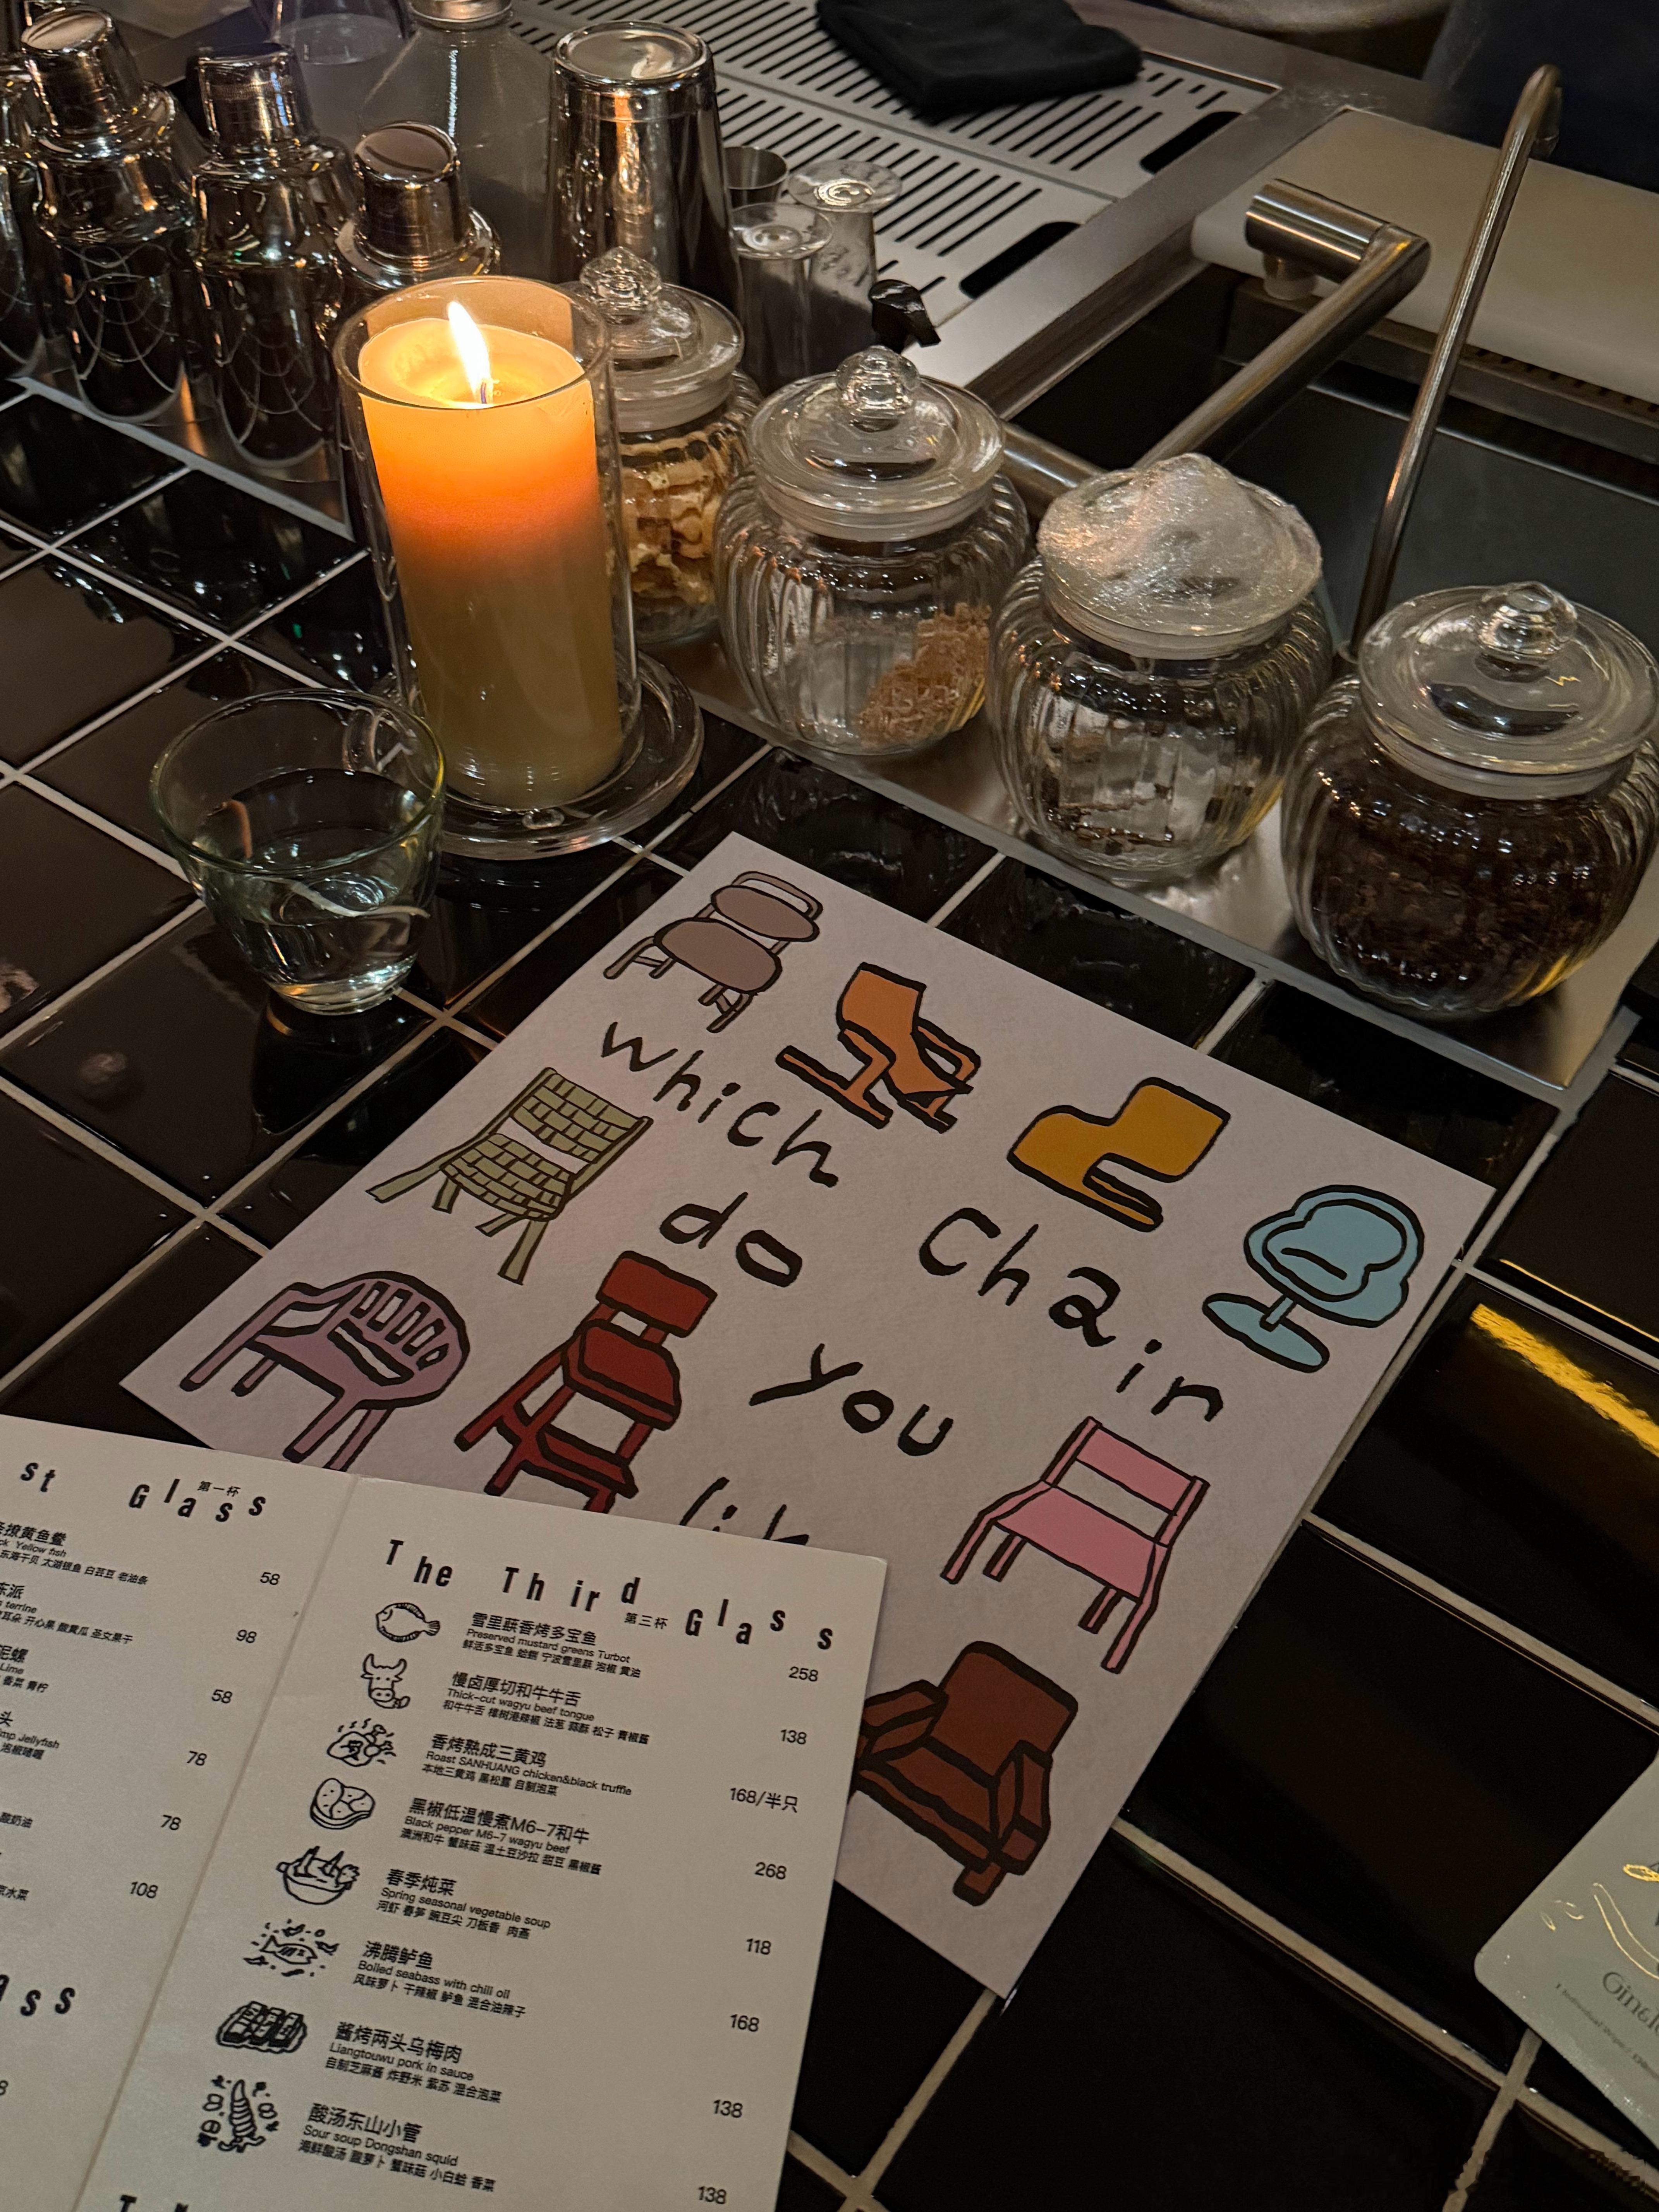 which
chair
do
you
st Glass
第一杯
撩黄鱼鲞
ck Yellow fish
东海干贝 太湖银鱼 白芸豆 老油条
58
冻派
terrine
开心果 酸黄瓜 圣女果干
98
泥螺
Lime
香菜 青柠
58
头
mp Jellyfish
泡椒啫喱
78
酸奶油
78
京水菜
108
ass
8
The Third Glass
第三杯
雪里蕻香烤多宝鱼
Preserved mustard greens Turbot
鲜活多宝鱼 蛤蜊 宁波雪里蕻 泡椒 黄油
258
慢卤厚切和牛牛舌
Thick-cut wagyu beef tongue
和牛牛舌 樟树港辣椒 法葱 蒜酥 松子 青椒酱
138
香烤熟成三黄鸡
Roast SANHUANG chicken&black truffle
本地三黄鸡 黑松露 自制泡菜
168/半只
黑椒低温慢煮M6-7和牛
Black pepper M6-7 wagyu beef
澳洲和牛 蟹味菇 温土豆沙拉 甜豆 黑椒酱
268
春季炖菜
Spring seasonal vegetable soup
河虾 春笋 豌豆尖 刀板香 肉燕
118
沸腾鲈鱼
Boiled seabass with chili oil
风味萝卜 干辣椒 鲈鱼 混合油辣子
168
酱烤两头乌梅肉
Liangtouwu pork in sauce
自制芝麻酱 炸野米 紫苏 混合泡菜
138
酸汤东山小管
Sour soup Dongshan squid
海鲜酸汤 酸萝卜 蟹味菇 小白蛤 香菜
138